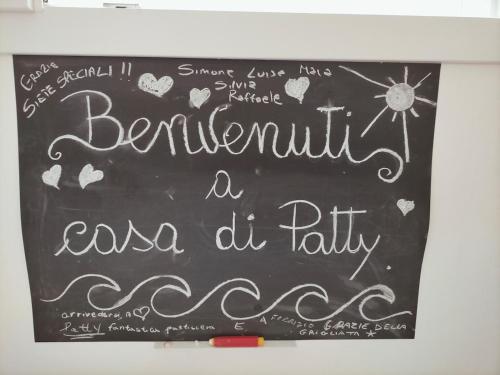 GRAZIE
SIETE SPECIALI !!
Simone Luisa Mara
Silvia
Raffaele
Benvenuti
a
casa di Patty.
arrivederci, A
Patty fantastica pasticciera E A FABRIZIO GRAZIE DELLA
GRIGLIATA